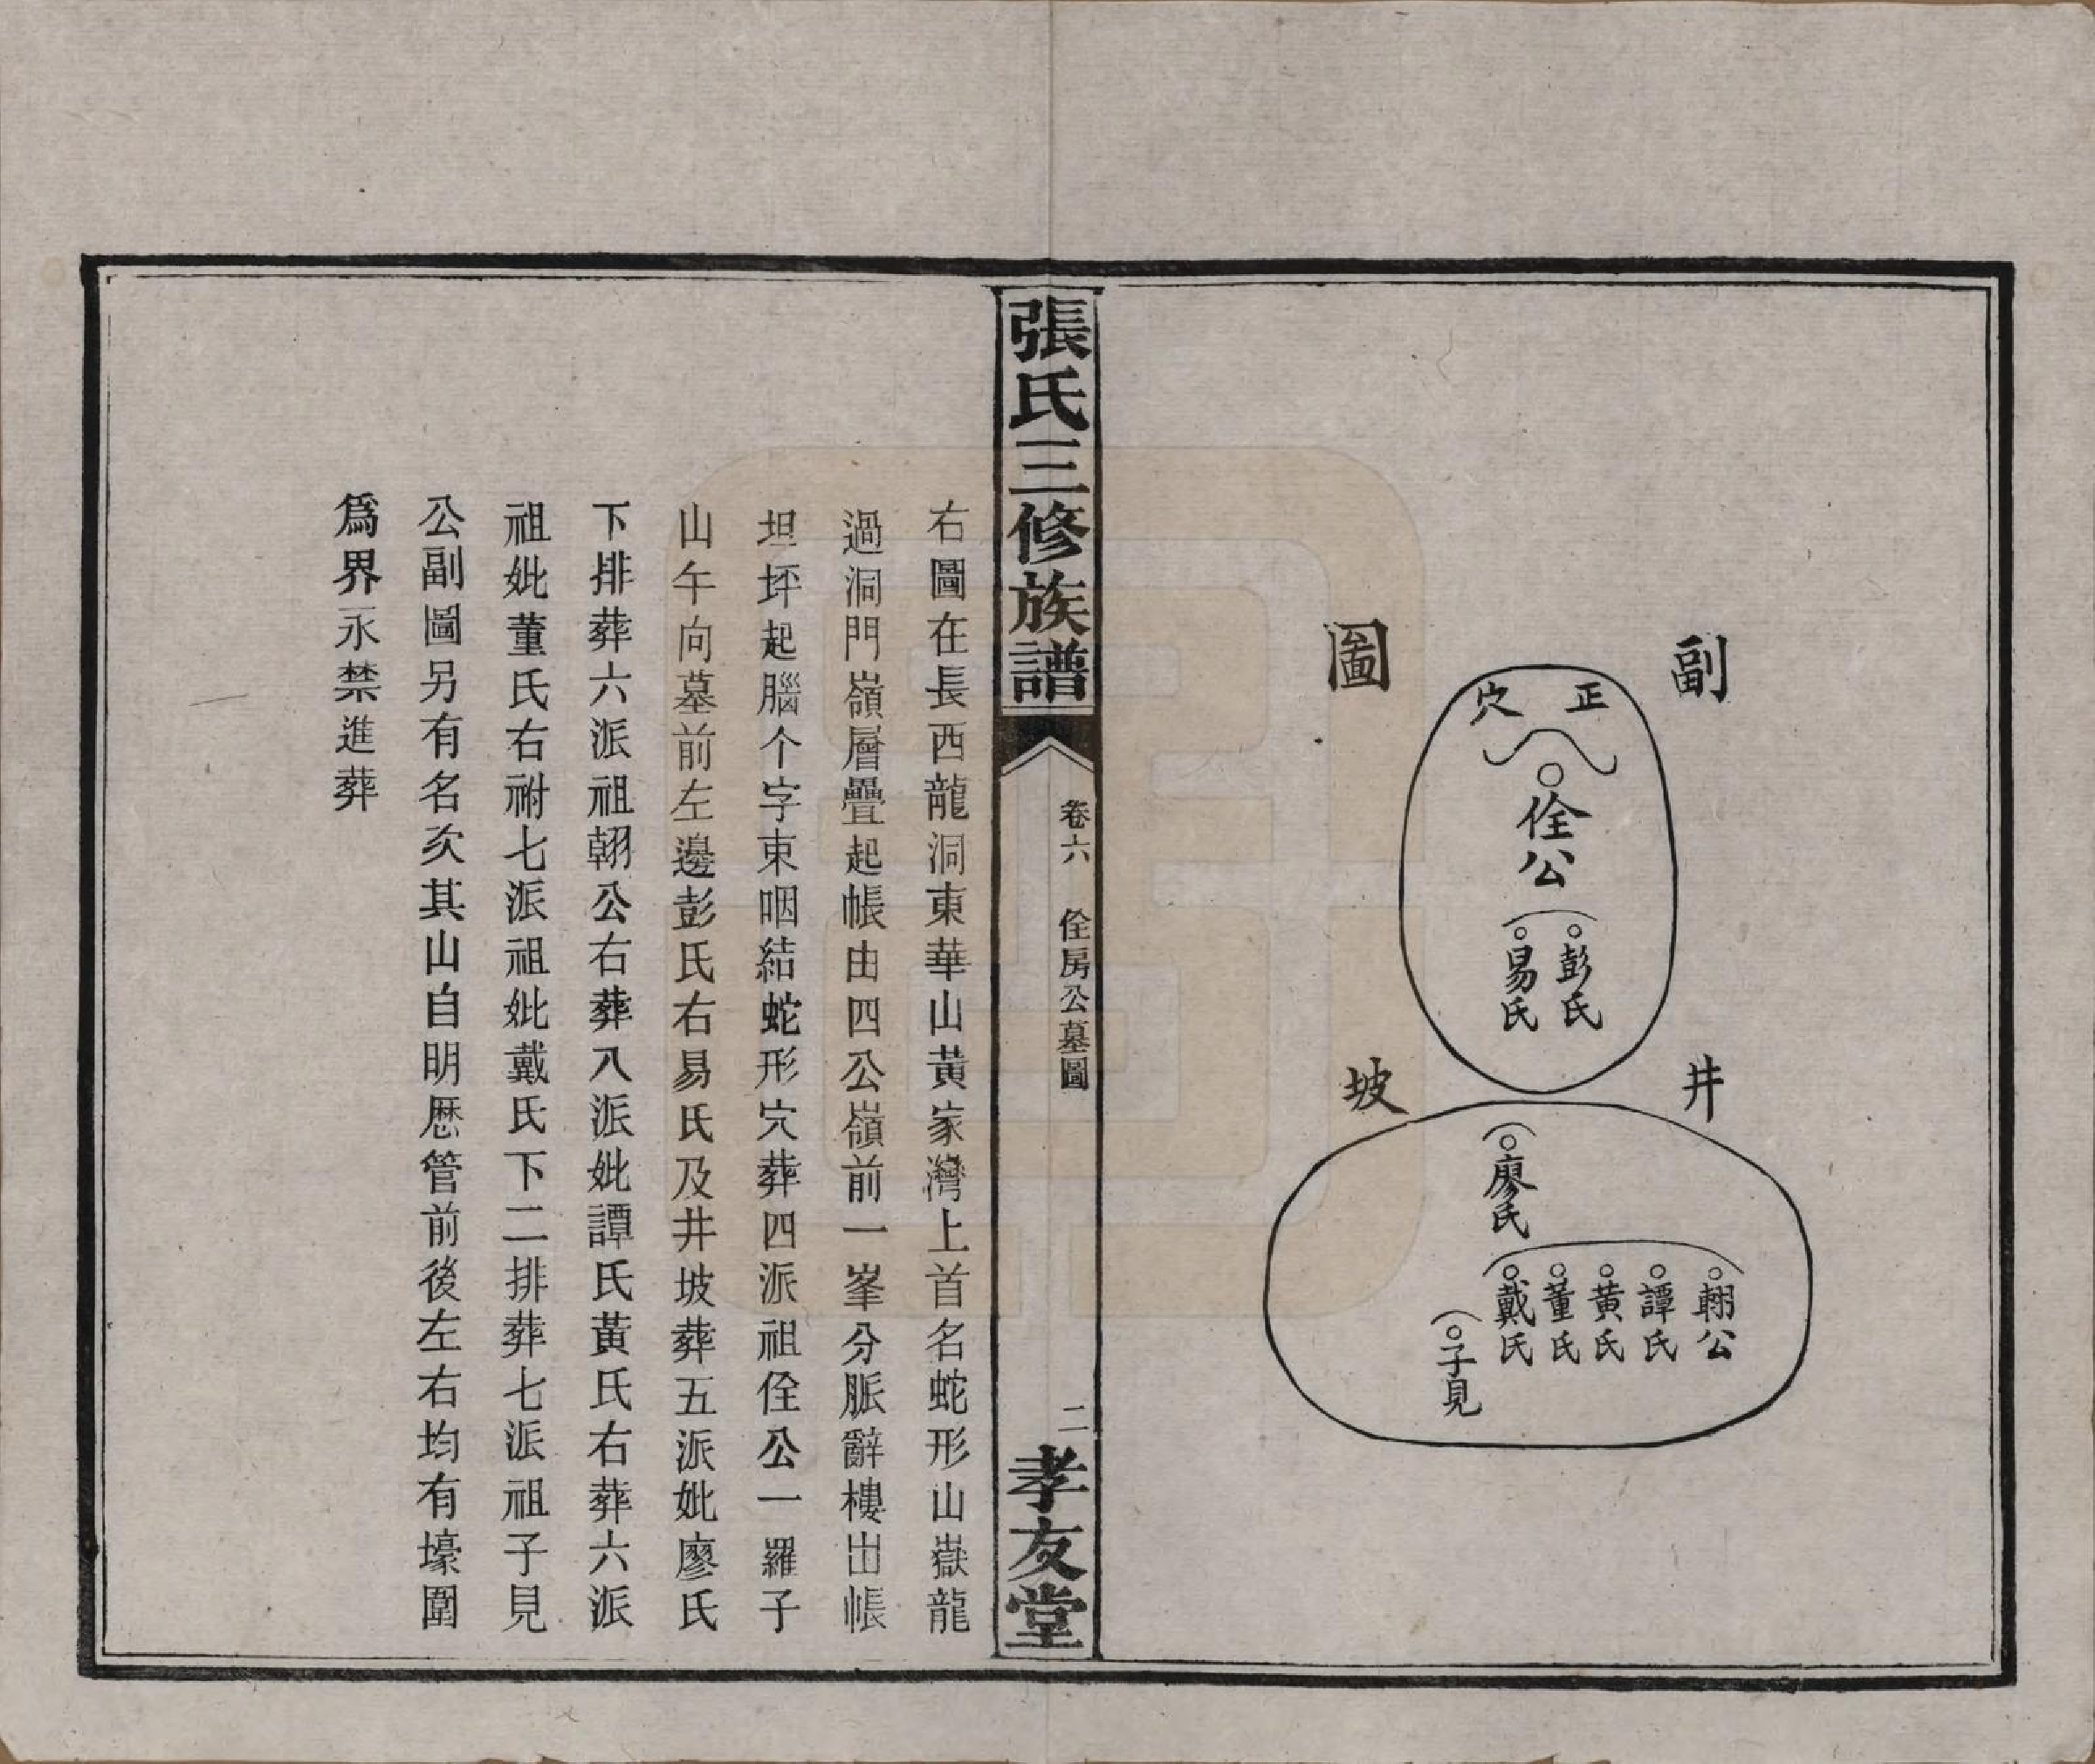 副圖
正穴
佺公
彭氏
易氏
井坡
廖氏
翶公
譚氏
黄氏
董氏
戴氏
子見
張氏三修族譜
卷六 佺房公墓圖
二
孝友堂
右圖在長西龍洞東華山黃家灣上首名蛇形山嶽龍
過洞門嶺層疊起帳由四公嶺前一峯分脈辭樓出帳
坦坪起腦个字束咽結蛇形穴葬四派祖佺公一羅子
山午向墓前左邊彭氏右易氏及井坡葬五派妣廖氏
下排葬六派祖翶公右葬八派妣譚氏黃氏右葬六派
祖妣董氏右祔七派祖妣戴氏下二排葬七派祖子見
公副圖另有名次其山自明歷管前後左右均有壕圍
爲界永禁進葬